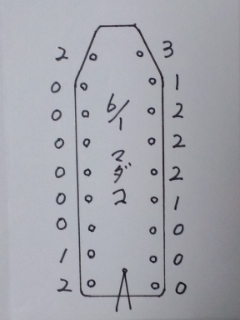 2 3
0 1
0 2
0 2
0 2
0 1
0 0
1 0
2 0
6/1
マダコ